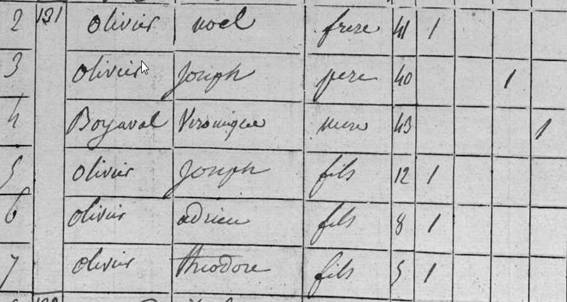 2 121 olivier noel frere 41 1
3 olivier Joseph pere 40 1
4 Boyaval Veronique mere 43 1
5 olivier Joseph fils 12 1
6 olivier adrien fils 8 1
7 olivier theodore fils 5 1